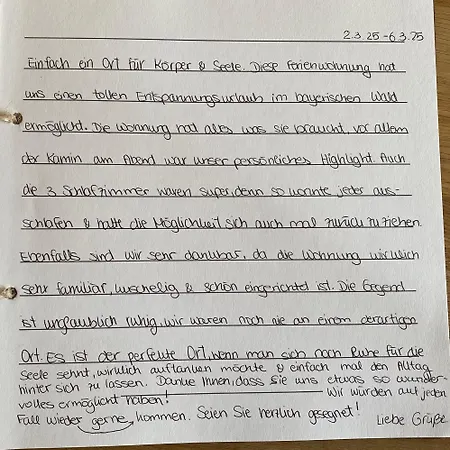 2.3.25-6.3.25
Einfach ein Ort für Körper & Seele. Diese Ferienwohnung hat
uns einen tollen Entspannungsurlaub im bayerischen Wald
ermöglicht. Die Wohnung hat alles was sie braucht, vor allem
der Kamin am Abend war unser persönliches Highlight. Auch
die 3 Schlafzimmer waren super, denn so konnte jeder aus-
schlafen & hatte die Möglichkeit sich auch mal zurück zu ziehen.
Ebenfalls sind wir sehr dankbar, da die Wohnung wirklich
sehr familiär, kuschelig & schön eingerichtet ist. Die Gegend
ist unglaublich ruhig, wir waren noch nie an einem derartigen
Ort. Es ist der perfekte Ort, wenn man sich nach Ruhe für die
Seele sehnt, wirklich auftanken möchte & einfach mal den Alltag
hinter sich zu lassen. Danke Ihnen, dass sie uns etwas so wunder-
volles ermöglicht haben! Wir würden auf jeden
Fall wieder gerne kommen. Seien Sie herzlich gesegnet!
Liebe Grüße